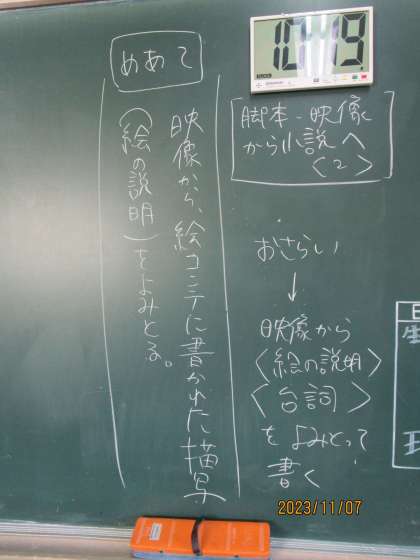 10:49
脚本-映像
から小説へ
<2>
おさらい
↓
映像から
<絵の説明>
<台詞>
をよみとって
書く
めあて
映像から、絵コンテに書かれた描写
(絵の説明)をよみとる。
2023/11/07